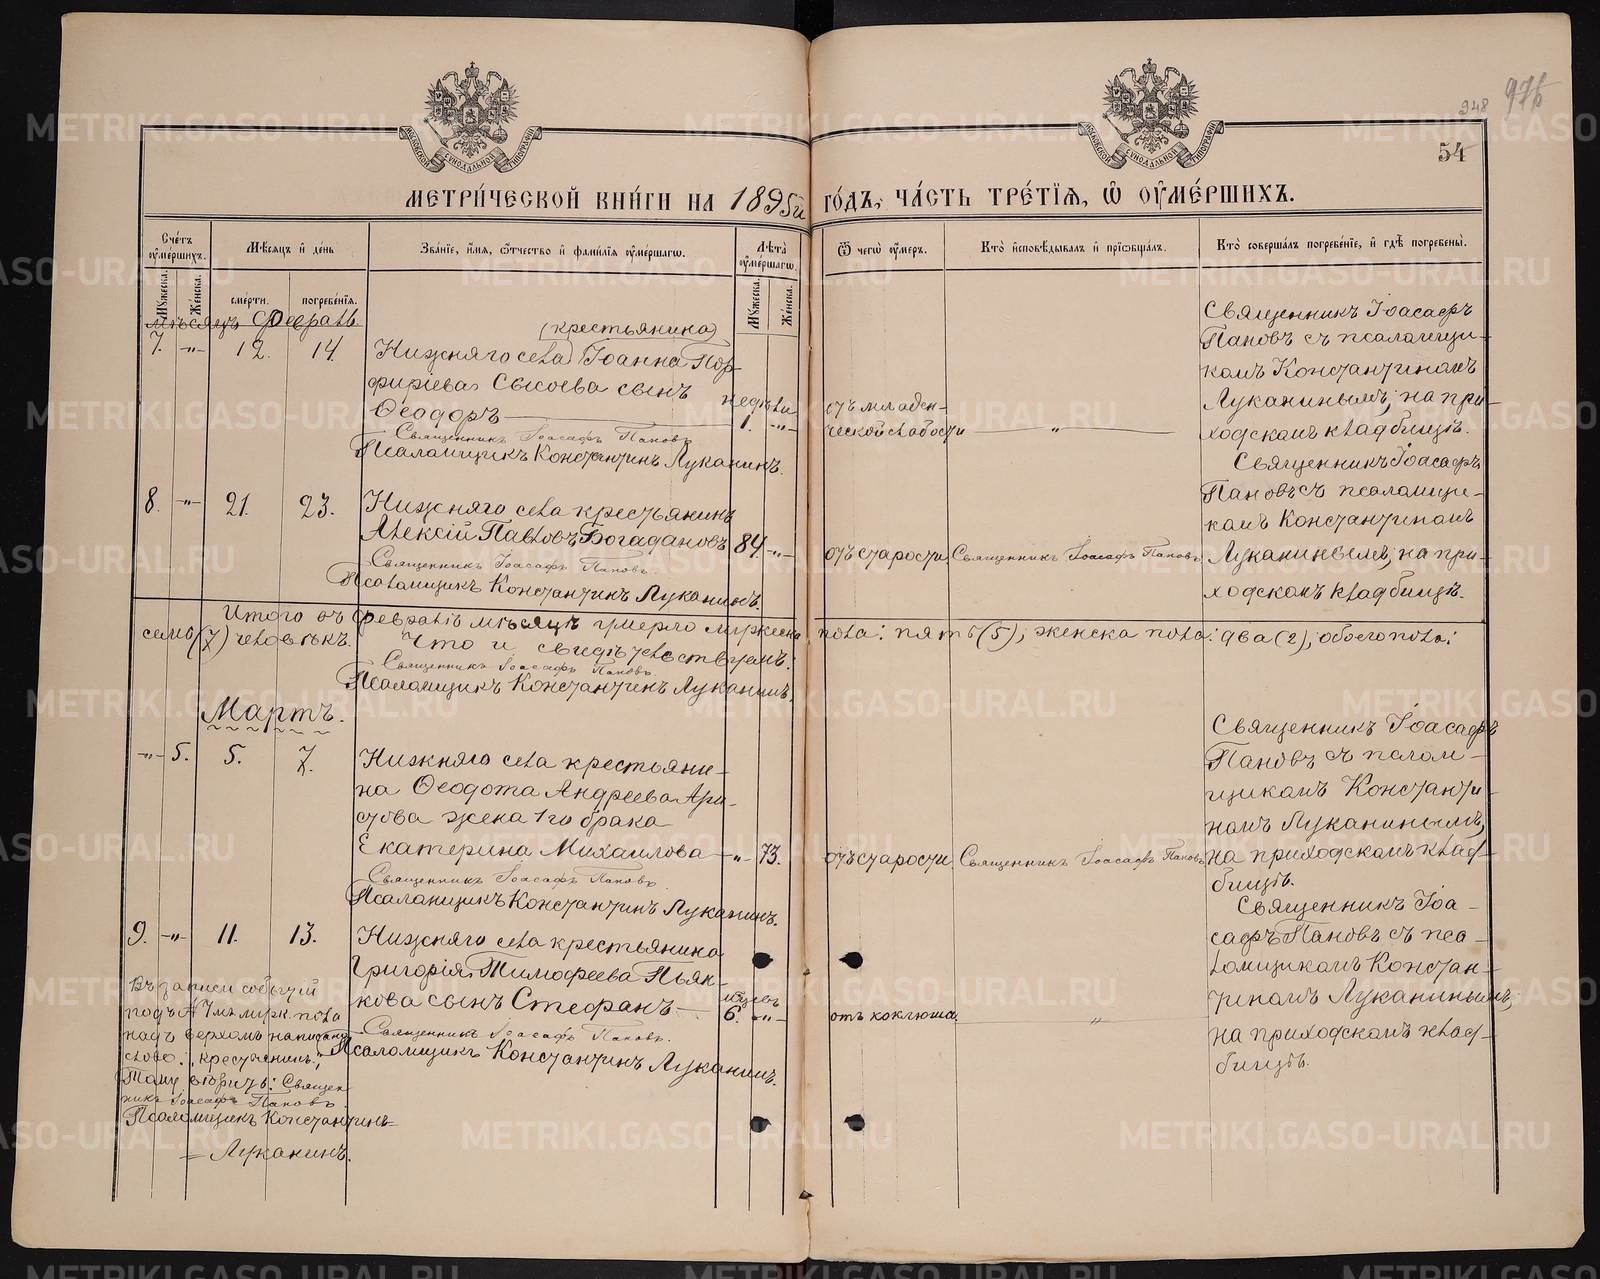 948 976
54
МОСКОВСКОЙ СѴНОДАЛЬНОЙ ТИПОГРАФІИ
МОСКОВСКОЙ СѴНОДАЛЬНОЙ ТИПОГРАФІИ
МЕТРИ́ЧЕСКОЙ КНИ́ГИ НА 1895й ГО́ДЪ, ЧА́СТЬ ТРЕ́ТІѦ, Ѡ ОУМЕ́РШИХЪ.
Сче́тъ оуме́ршихъ.
Мѣ́сѧцъ и де́нь
Зва́нїе, и́мѧ, ѻ҆́тчество и фами́лїѧ оуме́ршагѡ.
Лѣ́та оуме́ршагѡ.
Ѿ чегѡ̀ оу́меръ.
Кто̀ и҆сповѣ́дывалъ и прїѡбща́лъ.
Кто̀ соверша́лъ погребе́нїе, и гдѣ̀ погребены̀.
Мꙋ́жеска.
Же́нска.
сме́рти.
погребе́нїѧ.
Мꙋ́жеска.
Же́нска.
мѣсяцъ Февраль
7. -"- 12. 14.
(крестьянина)
Нижняго села Іоанна Пор-
фиріева Сысоева сынъ
Ѳеодоръ
недѣли
1. -"-
Священникъ Іоасафъ Пановъ
Псаломщикъ Константинъ Луканинъ.
отъ младен-
ческой слабости
"
Священникъ Іоасафъ
Пановъ съ псаломщи-
комъ Константиномъ
Луканинымъ, на при-
ходскомъ кладбищѣ.
8. -"- 21. 23.
Нижняго села крестьянинъ
Алексій Павловъ Богадановъ 84. -"-
Священникъ Іоасафъ Пановъ.
Псаломщикъ Константинъ Луканинъ.
отъ старости
Священникъ Іоасафъ Пановъ
Священникъ Іоасафъ
Пановъ съ псаломщи-
комъ Константиномъ
Луканинымъ, на при-
ходскомъ кладбищѣ.
Итого въ Февралѣ мѣсяцѣ умерло мужеска пола: пять (5), женска пола: два (2), обоего пола:
семь (7) человѣкъ. Что и свидѣтельствуемъ:
Священникъ Іоасафъ Пановъ.
Псаломщикъ Константинъ Луканинъ.
Мартъ.
-"- 5. 5. 7.
Нижняго села крестьяни-
на Ѳеодота Андреева Ари-
стова жена 1го брака
Екатерина Михаилова -"- 73.
Священникъ Іоасафъ Пановъ.
Псаломщикъ Константинъ Луканинъ.
отъ старости
Священникъ Іоасафъ Пановъ
Священникъ Іоасафъ
Пановъ съ псалом-
щикомъ Константи-
номъ Луканинымъ,
на приходскомъ клад-
бищѣ.
9. -"- 11. 13.
Нижняго села крестьянина
Григорія Тимофеева Пьян-
кова сынъ Стефанъ
мѣсяц.
6. -"-
Священникъ Іоасафъ Пановъ.
Псаломщикъ Константинъ Луканинъ.
отъ коклюша.
"
Священникъ Іоа-
сафъ Пановъ съ пса-
ломщикомъ Констан-
тиномъ Луканинымъ,
на приходскомъ клад-
бищѣ.
Въ записи событій
подъ № 7мъ мужск. пола
надъ верхомъ написано
слово: "крестьянинъ".
Тому вторитъ: Священ-
никъ Іоасафъ Пановъ
Псаломщикъ Константинъ
Луканинъ.
METRIKI.GASO-URAL.RU